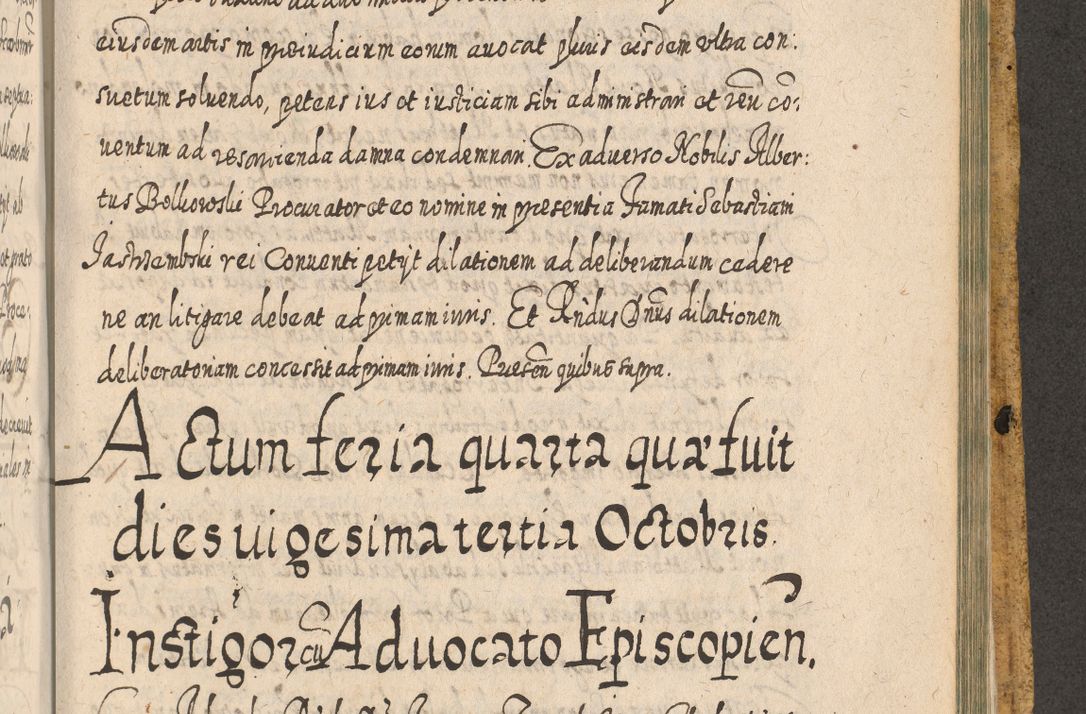 eiusdem artis in preiudicium eorum auocat pluris eisdem vltra con:
suetum soluendo, petens ius et iusticiam sibi administrari et reũ cõ:
uentum ad resarcienda damna condemnari. Ex aduerso Nobilis Alber:
tus Bolkowski Procurator et eo nomine in presentia Famati Sebastiani
Jastrzembski rei Conuenti petijt dilationem ad deliberandum cedere
ne an litigare debeat ad primam iuris. Et Rndus Dnus dilationem
deliberatoriam concessit ad primam iuris. Presen quibus supra.
Actum feria quarta quæ fuit
dies uigesima tertia Octobris.
Instigor cũ Aduocato Episcopień.